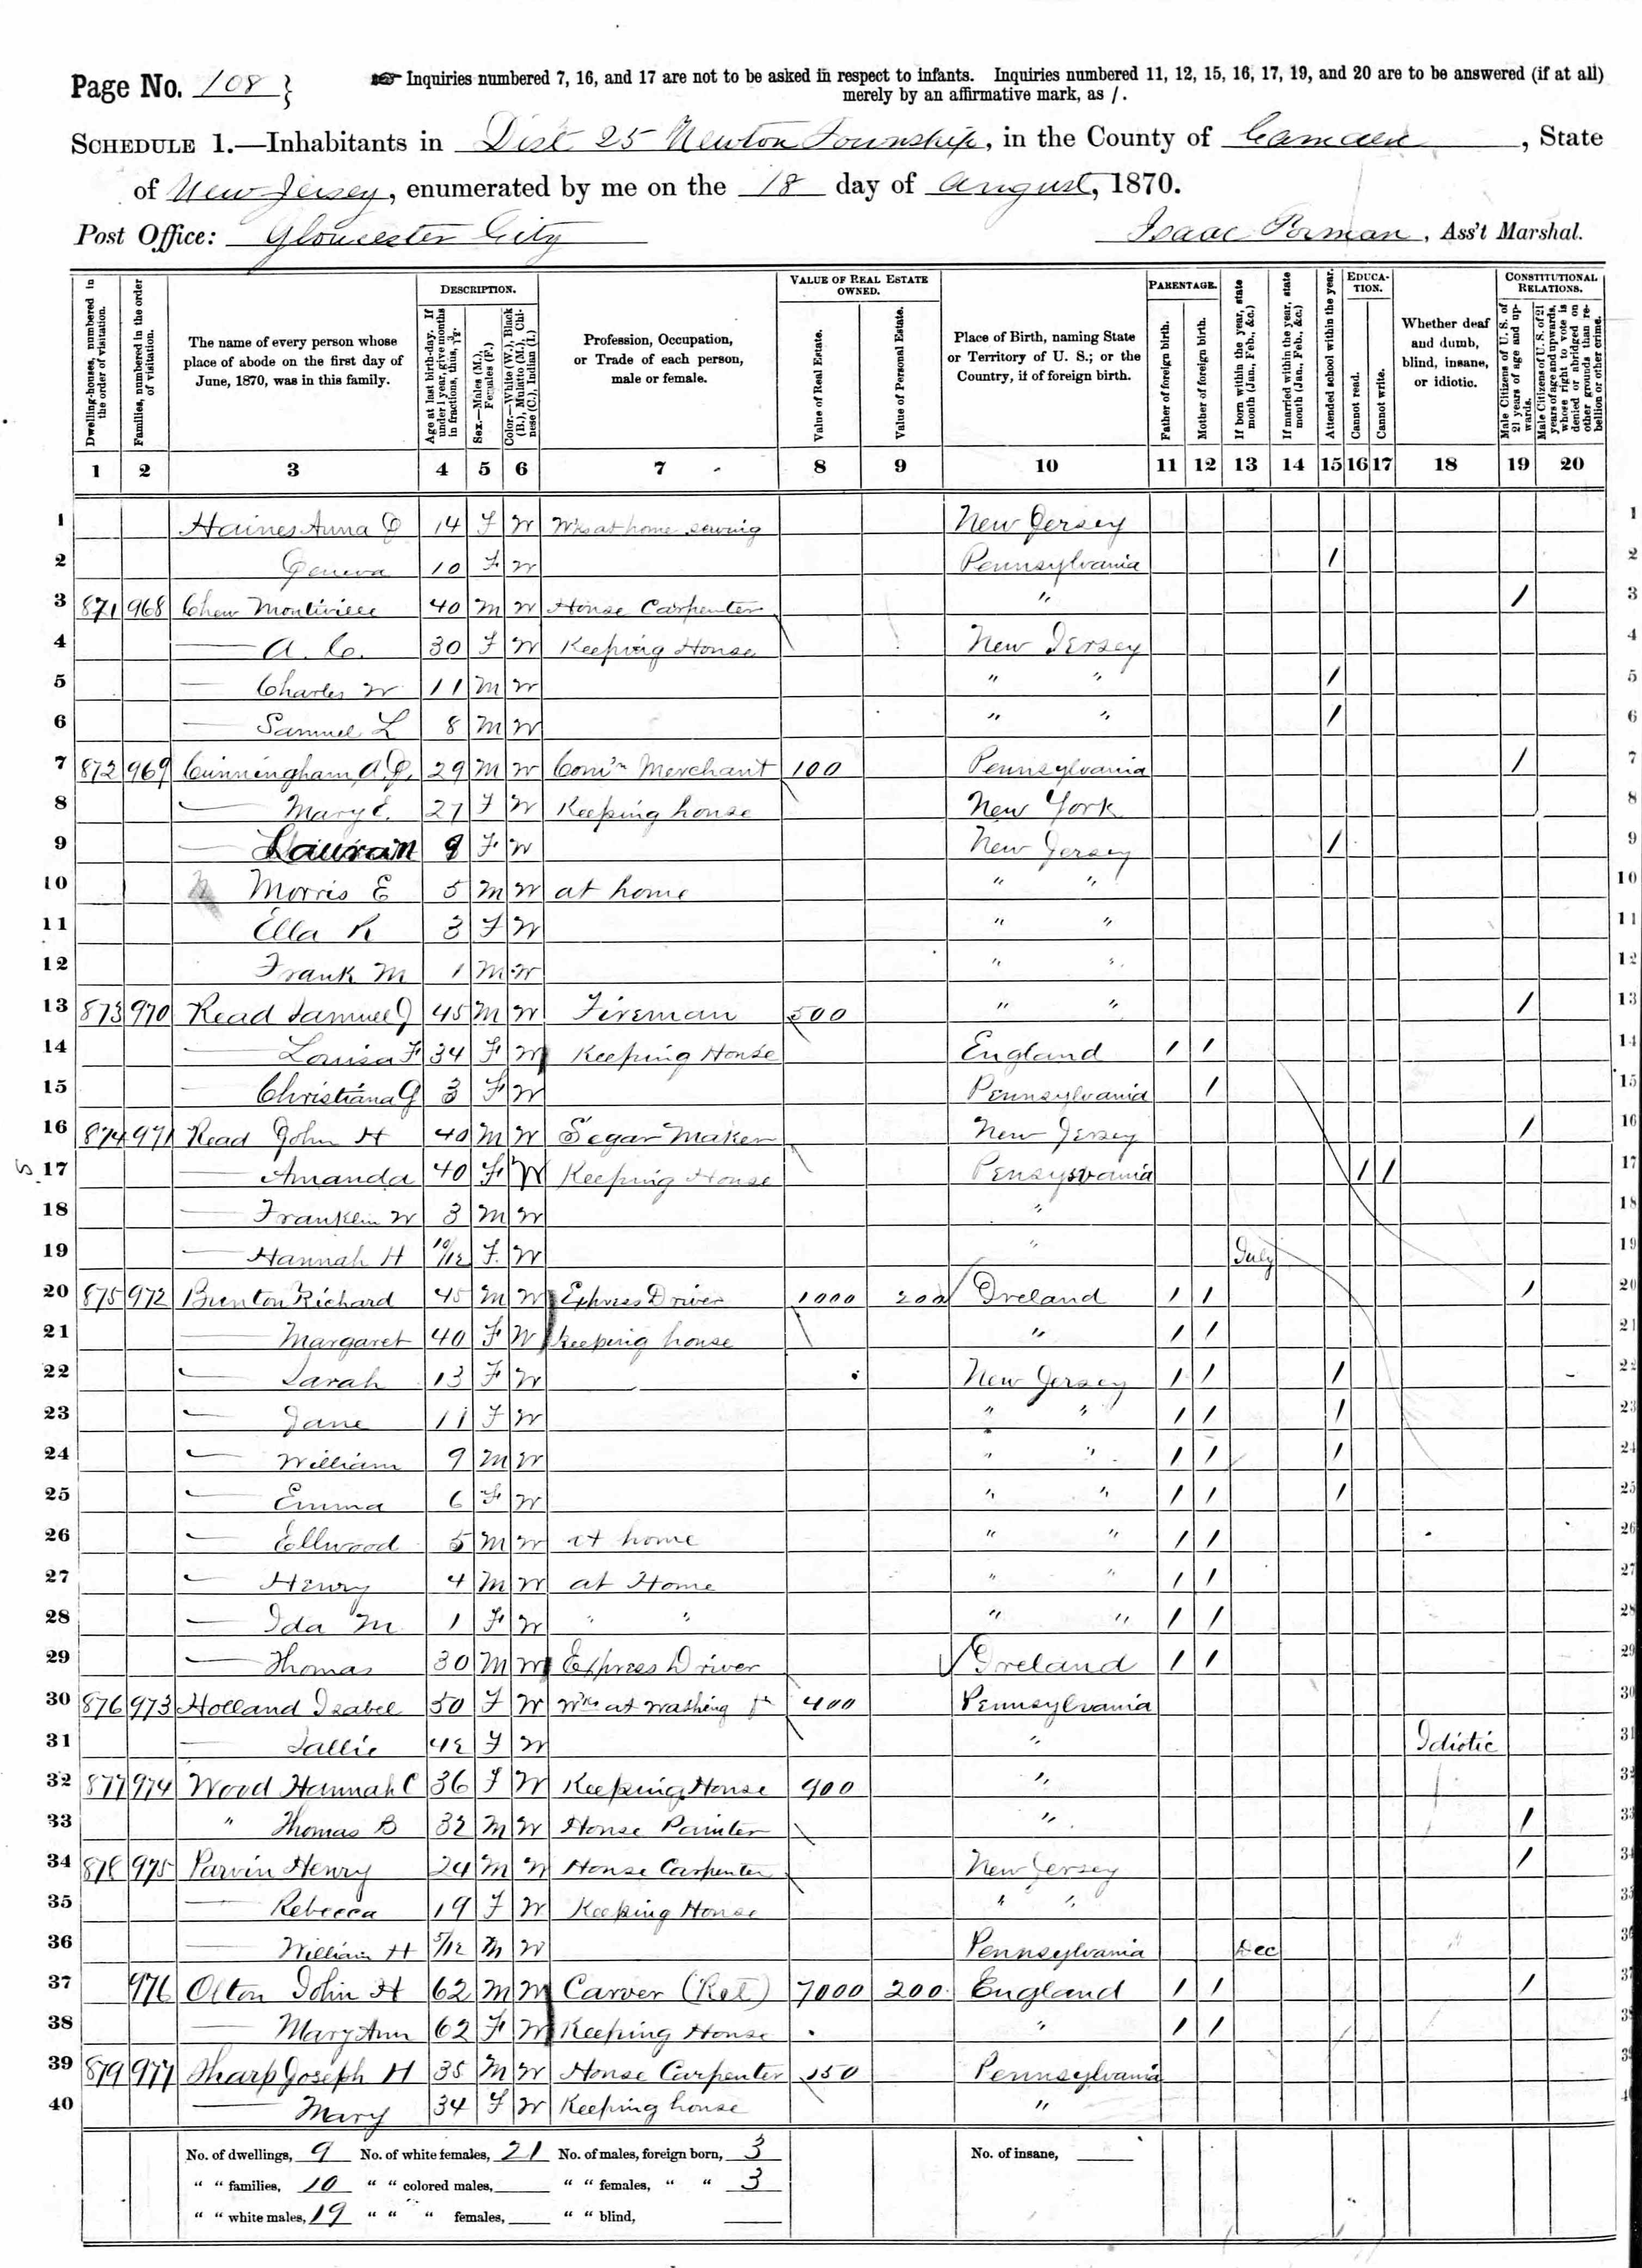 Page No. 108 }
Inquiries numbered 7, 16, and 17 are not to be asked in respect to infants. Inquiries numbered 11, 12, 15, 16, 17, 19, and 20 are to be answered (if at all)
merely by an affirmative mark, as /.
SCHEDULE 1.—Inhabitants in Dist 25 Newton Township, in the County of Camden, State
of New Jersey, enumerated by me on the 18 day of August, 1870.
Post Office: Gloucester City
Isaac, Ass't Marshal.
Dwelling-houses, numbered in the order of visitation.
Families, numbered in the order of visitation.
The name of every person whose place of abode on the first day of June, 1870, was in this family.
DESCRIPTION.
Age at last birth-day. If under 1 year, give months in fractions, thus, 3/12.
Sex.—Males (M.), Females (F.)
Color.—White (W.), Black (B.), Mulatto (M.), Chinese (C.), Indian (I.)
Profession, Occupation, or Trade of each person, male or female.
VALUE OF REAL ESTATE OWNED.
Value of Real Estate.
Value of Personal Estate.
Place of Birth, naming State or Territory of U. S.; or the Country, if of foreign birth.
PARENTAGE.
Father of foreign birth.
Mother of foreign birth.
If born within the year, state month (Jan., Feb., &c.)
If married within the year, state month (Jan., Feb., &c.)
Attended school within the year.
EDUCATION.
Cannot read.
Cannot write.
Whether deaf and dumb, blind, insane, or idiotic.
CONSTITUTIONAL RELATIONS.
Male Citizens of U. S. of 21 years of age and upwards.
Male Citizens of U. S. of 21 years of age and upwards, whose right to vote is denied or abridged on other grounds than rebellion or other crime.
1 2 3 4 5 6 7 8 9 10 11 12 13 14 15 16 17 18 19 20
1 Haines Anna 14 F W at home sewing New Jersey 1
2 Geneva 10 F W Pennsylvania / 2
3 871 968 Chew 40 M W House Carpenter " / 3
4 — A. C. 30 F W Keeping House New Jersey 4
5 — Charles W 11 M W " " / 5
6 — Samuel L 8 M W " " / 6
7 872 969 Cunningham A. J. 29 M W Com'n Merchant 100 Pennsylvania / 7
8 — Mary E. 27 F W Keeping house New York 8
9 — F W New Jersey / 9
10 Morris E 5 M W at home " " 10
11 Ella R 3 F W " " 11
12 Frank M 1 M W " " 12
13 873 970 Read Samuel J 45 M W Fireman 500 " " / 13
14 — Louisa F 34 F W Keeping House England / / 14
15 — Christiana G 3 F W Pennsylvania / 15
16 874 971 Read John H 40 M W Segar Maker New Jersey / 16
17 — Amanda 40 F W Keeping House Pensysvania / / 17
18 — Franklin W 3 M W " 18
19 — Hannah H 10/12 F. W " July 19
20 875 972 Richard 45 M W Express Driver 1000 200 Ireland / / / 20
21 — Margaret 40 F W Keeping house " / / 21
22 — Sarah 13 F W New Jersey / / / 22
23 — Jane 11 F W " " / / / 23
24 — William 9 M W " " / / / 24
25 — Emma 6 F W " " / / / 25
26 — Ellwood 5 M W at home " " / / 26
27 — Henry 4 M W at Home " " / / 27
28 — Ida M 1 F W " " " " / / 28
29 — Thomas 30 M W Express Driver Ireland / / 29
30 876 973 Holland Isabel 50 F W at washing 400 Pennsylvania 30
31 — Sallie 42 F W " Idiotic 31
32 877 974 Wood Hannah C 36 F W Keeping House 900 " 32
33 " Thomas B 32 M W House Painter " / 33
34 878 975 Parvin Henry 24 M W House Carpenter New Jersey / 34
35 — Rebecca 19 F W Keeping House " " 35
36 — William H 5/12 M W Pennsylvania Dec 36
37 976 Olton John H 62 M W Carver (Ret) 7000 200 England / / / 37
38 — Mary Ann 62 F W Keeping House " / / 38
39 879 977 Sharp Joseph H 35 M W House Carpenter 150 Pennsylvania 39
40 — Mary 34 F W Keeping house " 40
No. of dwellings, 9 No. of white females, 21 No. of males, foreign born, 3 No. of insane,
" " families, 10 " " colored males, " " females, " " 3
" " white males, 19 " " " females, " " blind,